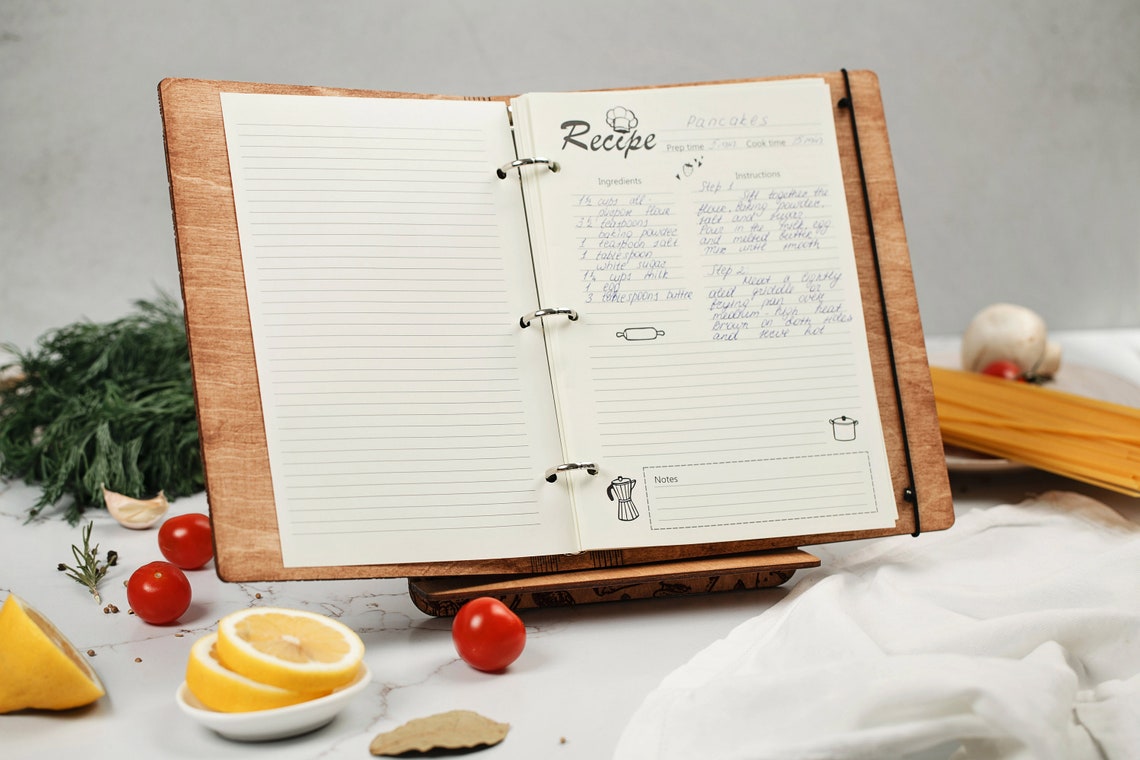 Recipe
Pancakes
Prep time 5 min Cook time 15 min
Ingredients
1½ cups all-
purpose flour
3½ teaspoons
baking powder
1 teaspoon salt
1 tablespoon
white sugar
1¼ cups milk
1 egg
3 tablespoons butter
Instructions
Step 1
Sift together the
flour, baking powder,
salt and sugar.
Pour in the milk, egg
and melted butter;
mix until smooth
Step 2:
Heat a lightly
oiled griddle or
frying pan over
medium-high heat.
Brown on both sides
and serve hot
Notes